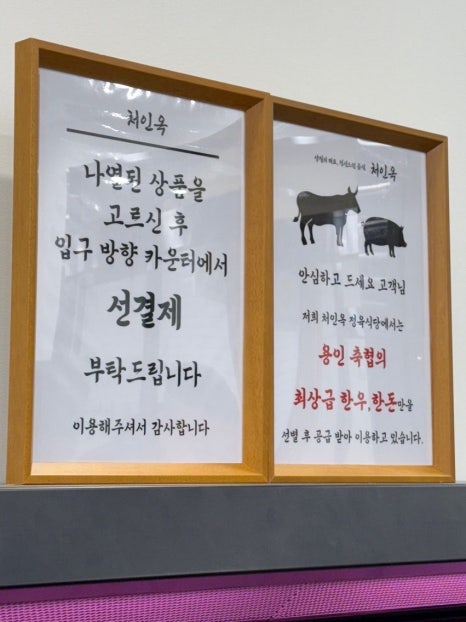 처인옥
나열된 상품을
고르신 후
입구 방향 카운터에서
선결제
부탁드립니다
이용해주셔서 감사합니다
처인옥
안심하고 드세요 고객님
저희 처인옥 정육식당에서는
용인 축협의
최상급 한우, 한돈만을
선별 후 공급 받아 이용하고 있습니다.